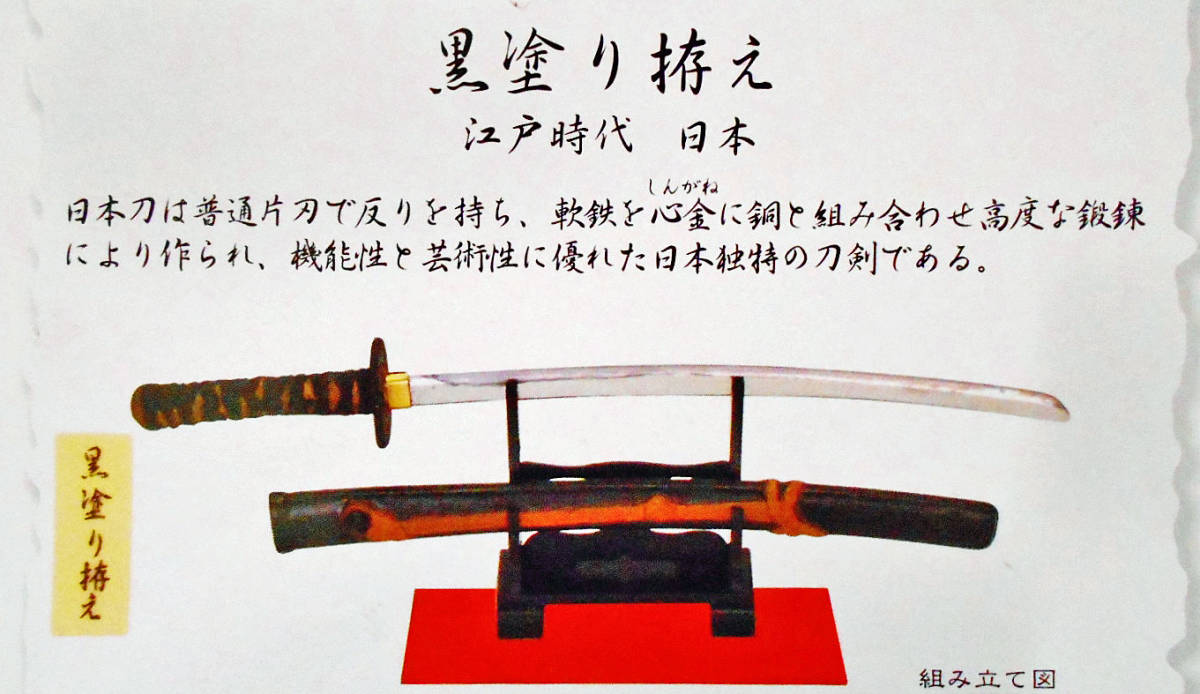 黒塗り拵え
江戸時代 日本
しんがね
日本刀は普通片刃で反りを持ち、軟鉄を心金に銅と組み合わせ高度な鍛錬
により作られ、機能性と芸術性に優れた日本独特の刀剣である。
黒塗り拵え
組み立て図